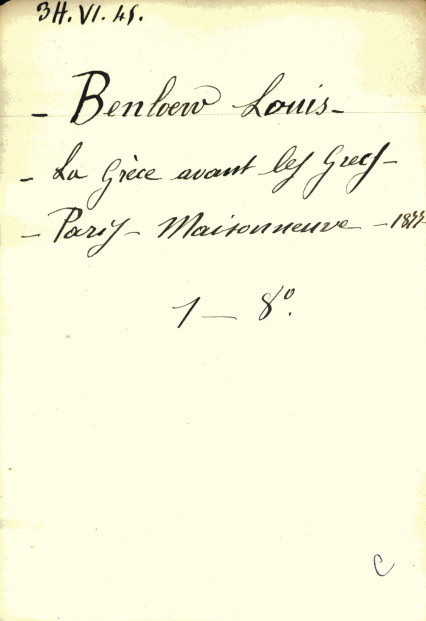 3H. VI. 45.
- Benloew Louis -
- La Grèce avant les Grecs -
- Paris - Maisonneuve - 1877
1 - 8º.
C